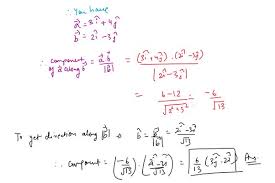 ∴ You have
a⃗ = 3î + 4ĵ
b⃗ = 2î - 3ĵ
∴ component of a⃗ along b⃗ = a⃗.b⃗ / |b⃗| = (3î + 4ĵ) . (2î - 3ĵ) / |2î - 3ĵ|
= 6 - 12 / √(2² + 3²) = -6 / √13
To get direction along b⃗, b̂ = b⃗ / |b⃗| = 2î - 3ĵ / √13
∴ component = (-6/√13) . (2î - 3ĵ / √13) = 6/13 (3ĵ - 2î) Ans.